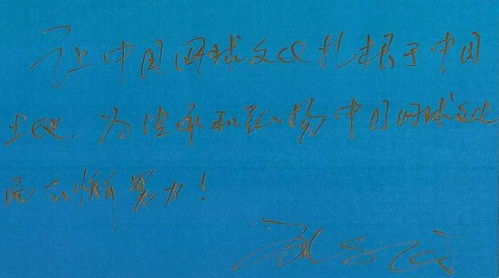 让中国网球文化扎根于中国
土地,为传承和弘扬中国网球文化
而不懈努力!